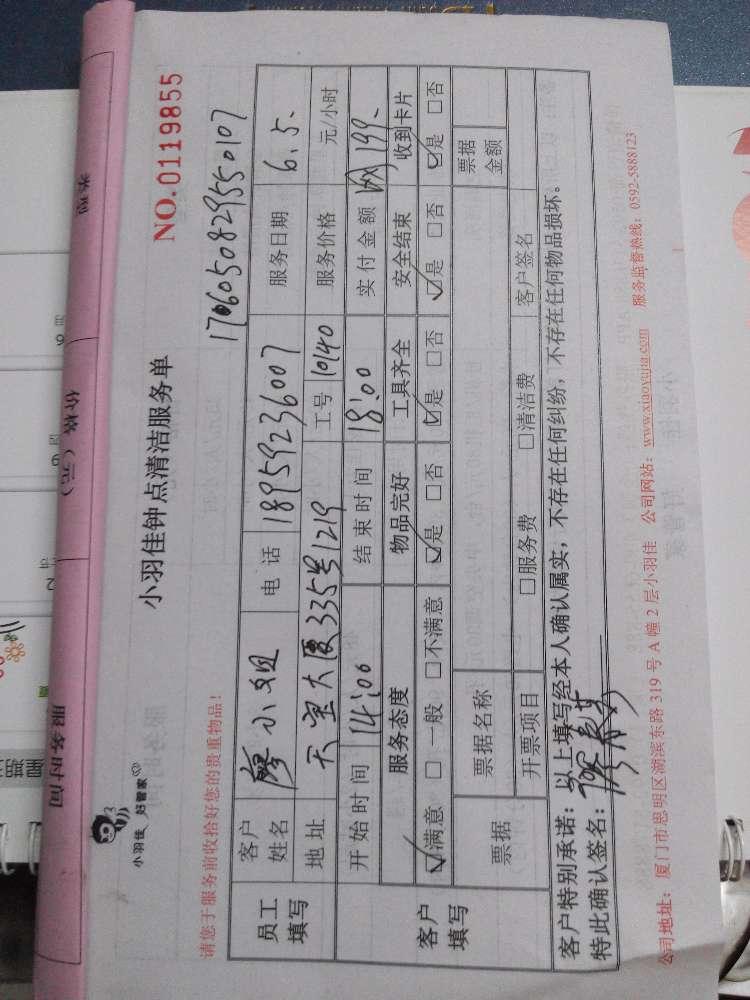 小羽佳 好管家
小羽佳钟点清洁服务单
NO.0119855
请您于服务前收拾好您的贵重物品！
1706050829550107
员工填写 客户姓名 廖小姐 电话 18959236007 服务日期 6.5.
地址 天宝大厦335号1219 工号 10140 服务价格 元/小时
客户填写 开始时间 14:00 结束时间 18:00 实付金额 199.
服务态度 物品完好 工具齐全 安全结束 收到卡片
☑满意 □一般 □不满意 ☑是 □否 ☑是 □否 ☑是 □否 ☑是 □否
票据 票据名称 票据金额
开票项目 □服务费 □清洁费 客户签名
客户特别承诺：以上填写经本人确认属实，不存在任何纠纷，不存在任何物品损坏。
特此确认签名：
公司地址：厦门市思明区湖滨东路 319 号 A 幢 2 层小羽佳 公司网站：www.xiaoyujia.com 服务监督热线：0592-5888123
服务时间
价格（元）
类型
星期